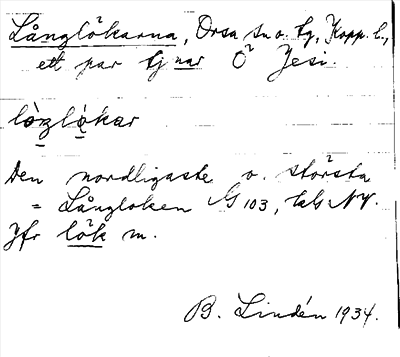 Långlökarna, Orsa sn o. tg, Kopp. l.,
ett par tjnar Ö Jesi
lòzlò̱kar
Den nordligaste o. största
= Långloken G 103, kls NV.
Jfr lök m.
B. Lindén 1934.